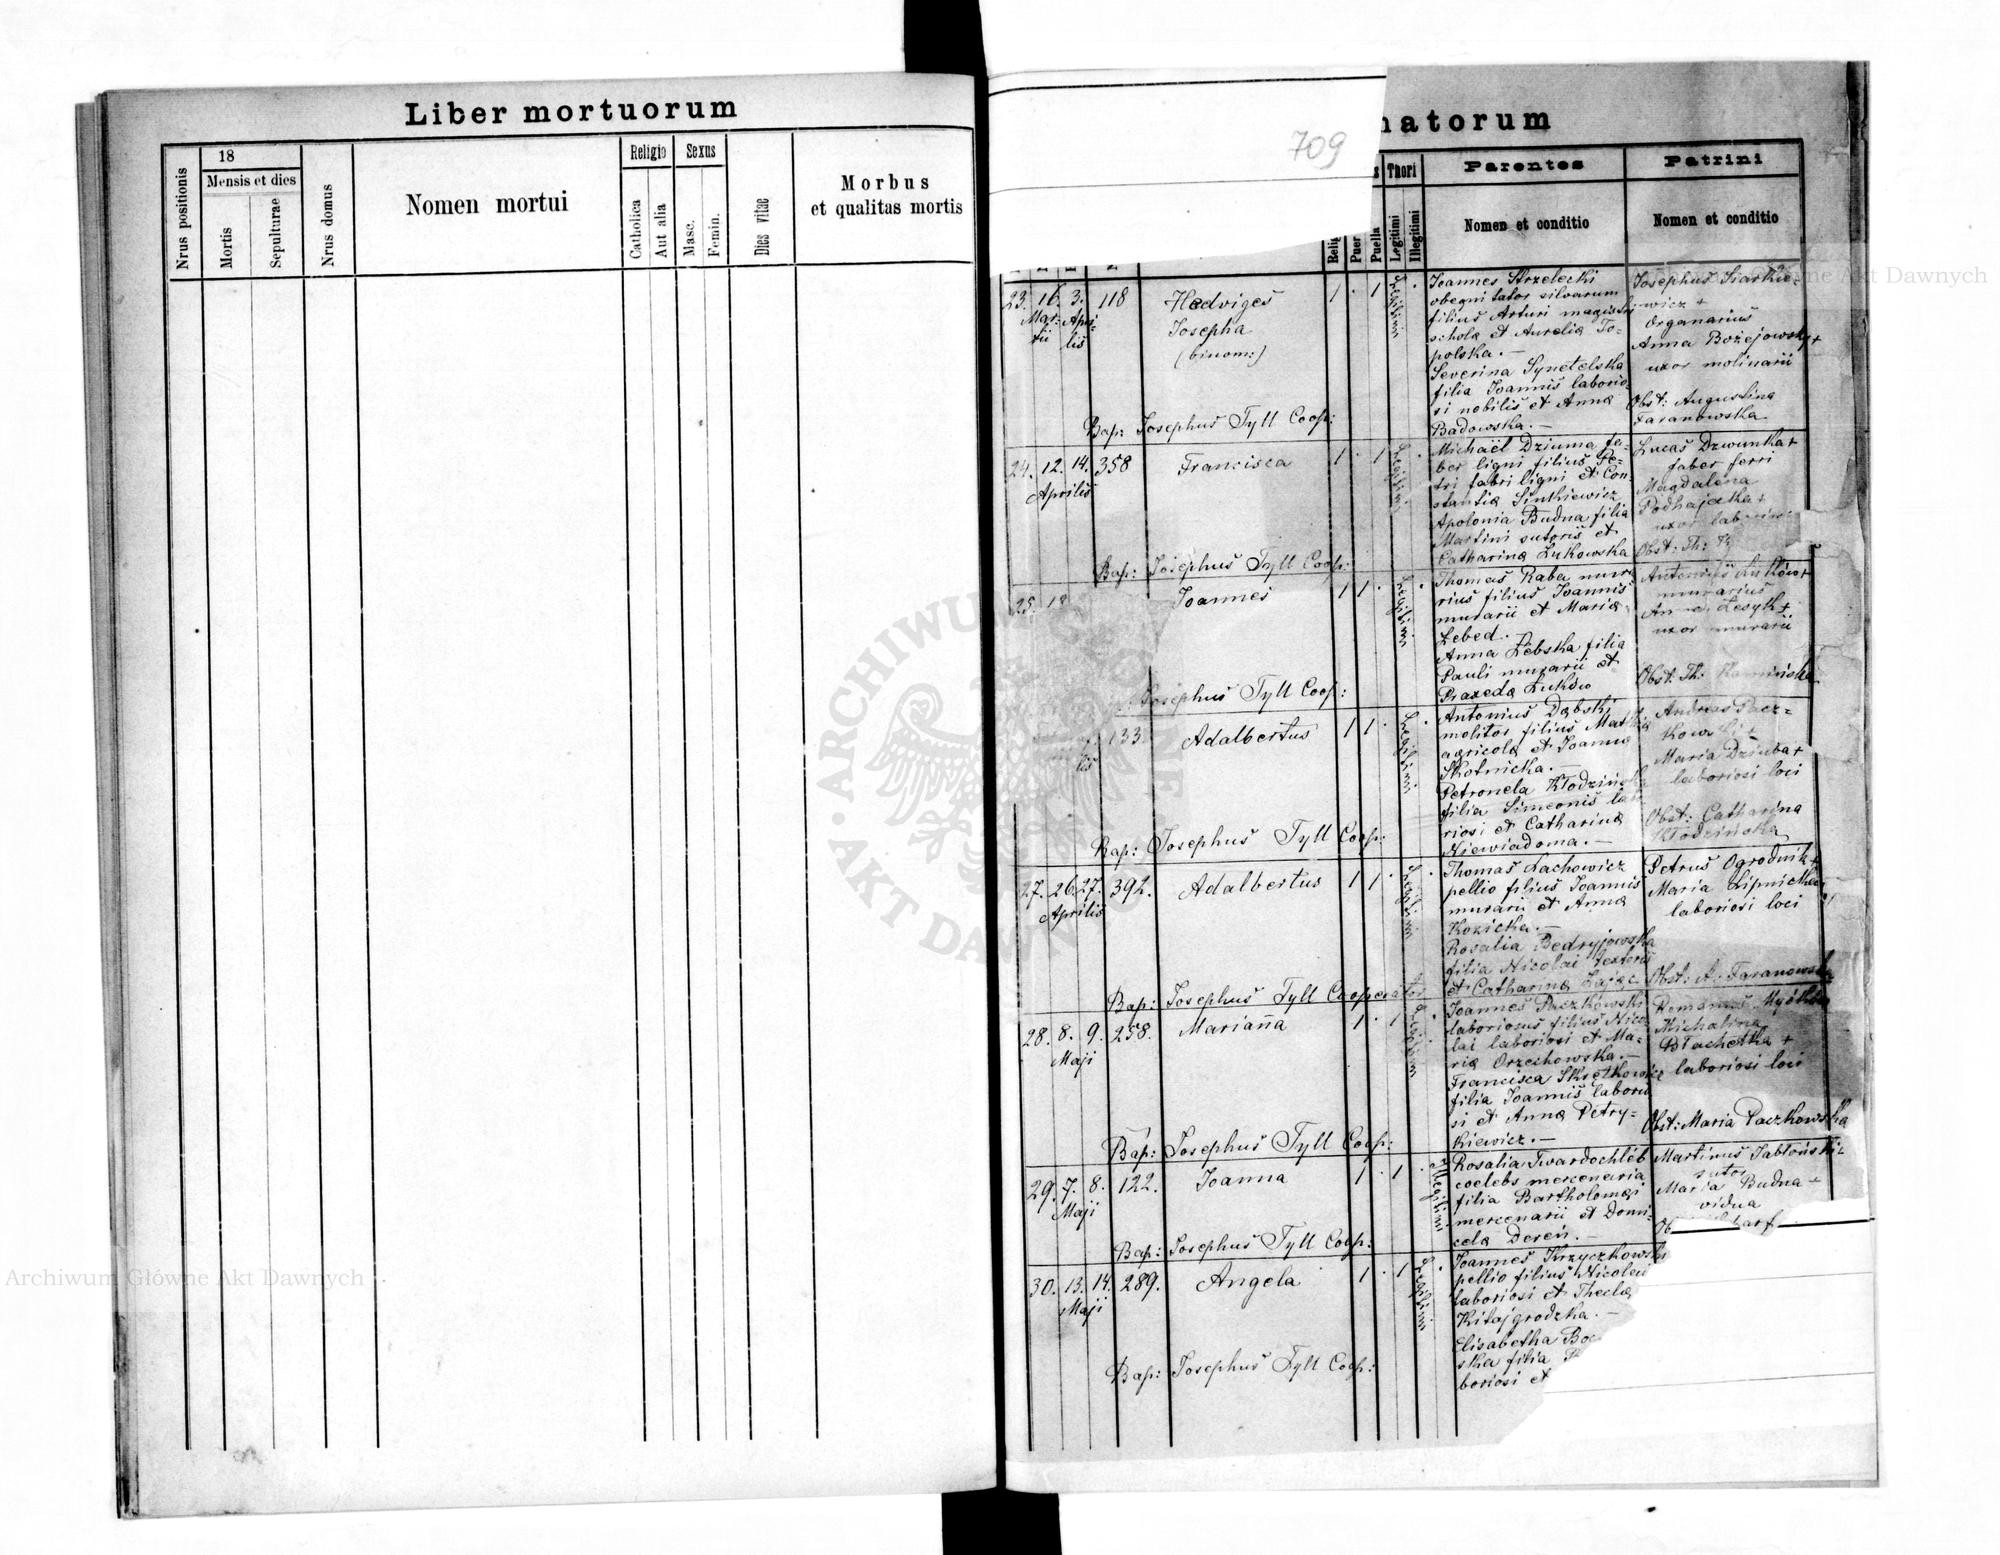 Liber mortuorum
Nrus positionis
18
Mensis et dies
Mortis
Sepulturae
Nrus domus
Nomen mortui
Religio
Catholica
Aut alia
Sexus
Masc.
Femin.
Dies vitae
Morbus
et qualitas mortis
709
natorum
Thori
Parentes
Patrini
Relig
Puer
Puella
Legitimi
Illegitimi
Nomen et conditio
Nomen et conditio
23. 16. 3. 118 Hedviges 1 · 1 Legitimi
Mar- Apri-
tii lis
Josepha
(binom:)
Joannes Strzelecki
silvarum
filius Arturi magistri
scholæ et Aurelia To-
polska. —
Severina Synetelska
filia Joannis laborio-
si nobilis et Anna
Badowska. —
Josephus
wicz +
Organarius
Anna Bożejowska +
uxor molinarii
Obst: Augustina
Faranowska
Bap: Josephus Tyll Coop:
24. 12. 14. 358 Francisca 1 · 1 Legitimi
Aprilis
Michaël Dziuma fa-
ber ligni filius Pe-
tri fabri ligni et Con-
stantia Sinkiewicz
Apolonia Budna filia
Martini sutoris et
Catharina Łukowska
Lucas Dzwunka +
faber ferri
Magdalena
Podhajecka +
uxor
Obst: Th:
Bap: Josephus Tyll Coop:
25. 18 Joannes 1 1 · Legitimi
Thomas Raba mura
rius filius Joannis
murarii et Maria
Łebed.
Anna Łebska filia
Pauli murarii et
Praxeda Łuków
Antonius Łuków +
murarius
Anna Lesyk +
uxor murarii
Obst: Th: Kamińska
Josephus Tyll Coop:
133. Adalbertus 1 1 · Legitimi
lis
Antonius Dąbski
molitor filius Matthia
agricola et Joanna
Skotnicka. —
Petronela Kłodzińska
filia Simeonis labo
riosi et Catharina
Niewiadoma. —
Andreas Pacz-
kowski +
Maria Dziuba +
laboriosi loci
Obst: Catharina
Kłodzińska
Bap: Josephus Tyll Coop:
27. 26. 27. 392. Adalbertus 1 1 · Legitimi
Aprilis
Thomas Lachowicz
pellio filius Joannis
murarii et Anna
Kozicka. —
Rosalia Bedryjowska
filia Nicolai textoris
et Catharina Zając
Petrus Ogrodnik +
Maria Lipnicka
laboriosi loci
Obst: A. Faranowska
Bap: Josephus Tyll Cooperator
28. 8. 9. 258. Marianna 1 · 1 Legitimi
Maji
Joannes Paczkowski
laboriosus filius Nico-
lai laboriosi et Ma-
ria Orzechowska. —
Francisca Skrętkowicz
filia Joannis laborio
si et Anna Petry-
kiewicz. —
Romanus
Michalina
Błachetka +
laboriosi loci
Obst: Maria Paczkowska
Bap: Josephus Tyll Coop:
29. 7. 8. 122. Joanna 1 · 1 · Illegitimi
Maji
Rosalia Twardochleb
coelebs mercenaria
filia Bartholomæi
mercenarii et Domi-
cela Dereń. —
Martinus Jabłoński
sutor
Maria Budna +
vidua
Bap: Josephus Tyll Coop:
30. 13. 14. 289. Angela 1 · 1 Legitimi
Maji
Joannes Krzyczkowski
pellio filius Nicolai
laboriosi et Thecla
Kitajgrodzka. —
Elisabetha Bo
ska filia
boriosi et
Bap: Josephus Tyll Coop:
ARCHIWUM GŁÓWNE · AKT DAWNYCH ·
Archiwum Główne Akt Dawnych
Główne Akt Dawnych